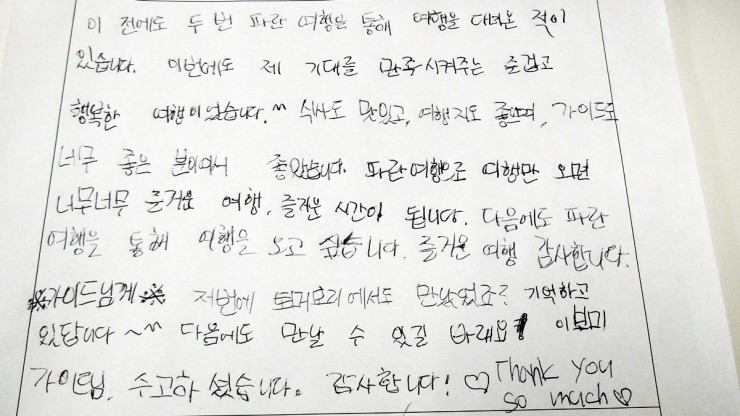 이 전에도 두 번 파란 여행을 통해 여행을 다녀온 적이
있습니다. 이번에도 제 기대를 만족시켜주는 즐겁고
행복한 여행이었습니다.^^ 식사도 맛있고, 여행지도 좋았으며, 가이드도
너무 좋은 분이어서 좋았습니다. 파란여행으로 여행만 오면
너무너무 즐거운 여행, 즐거운 시간이 됩니다. 다음에도 파란
여행을 통해 여행을 오고 싶습니다. 즐거운 여행 감사합니다.
※가이드님께※ 저번에 에서도 만났었죠? 기억하고
있답니다 ~^^ 다음에도 만날 수 있길 바래요! 이보미
가이드님, 수고하셨습니다. 감사합니다! ♡ Thank you
so much♡